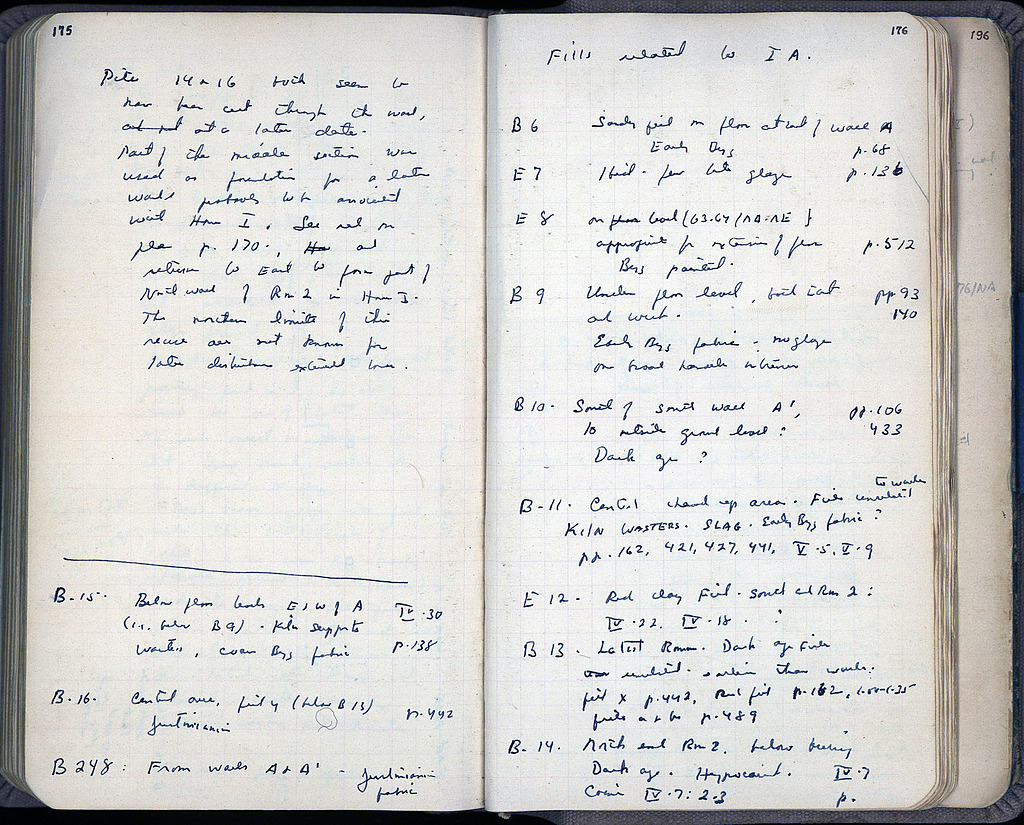 175
Pits 14 & 16 both seem to
have been cut through the wall,
at a later date.
Part of the middle section was
used as foundation for a later
wall, probably to be associated
with House I. See red on
plan p. 170, and
returns to East to form part of
North wall of Rm 2 in House I.
The northern limits of this
are not known for
later disturbance extended
B-15. Below floor levels E & W of A IV.30
(i.e. below B9). Kiln supports
wasters, coarse Byz fabric p.138
B-16. Central area, pit y (below B13) p.442
Justinianic
B 248: From walls A & A' - Justinianic
fabric
176
Fills related to I A.
B 6 Sandy fill on floor at of wall A
Early Byz p.68
E 7 Ibid. few late glaze p.136
E 8 on level (63.64/NA:NE)
of floor p.512
Byz painted.
B 9 Under floor level, both East pp 93
and West. 140
Early Byz fabric. no glaze
on broad handle
B 10. South of south wall A', pp.106
to outside ground level? 433
Dark age?
B-11. Central area. Fills to walls
KILN WASTERS. SLAG. Early Byz fabric?
pp. 162, 421, 427, 441, V.5, V.9
E 12. Red clay Fill. South end Rm 2:
IV.22, IV.18. ?
B 13. Latest Roman. Dark age Fills
earlier than walls:
pit x p.442, Red fill p.162,
pits a & b p.489
B-14. North end Rm 2, below
Dark age. Hypocaust. IV.7
Coin IV.7: 2.3 p.
196
76/NA